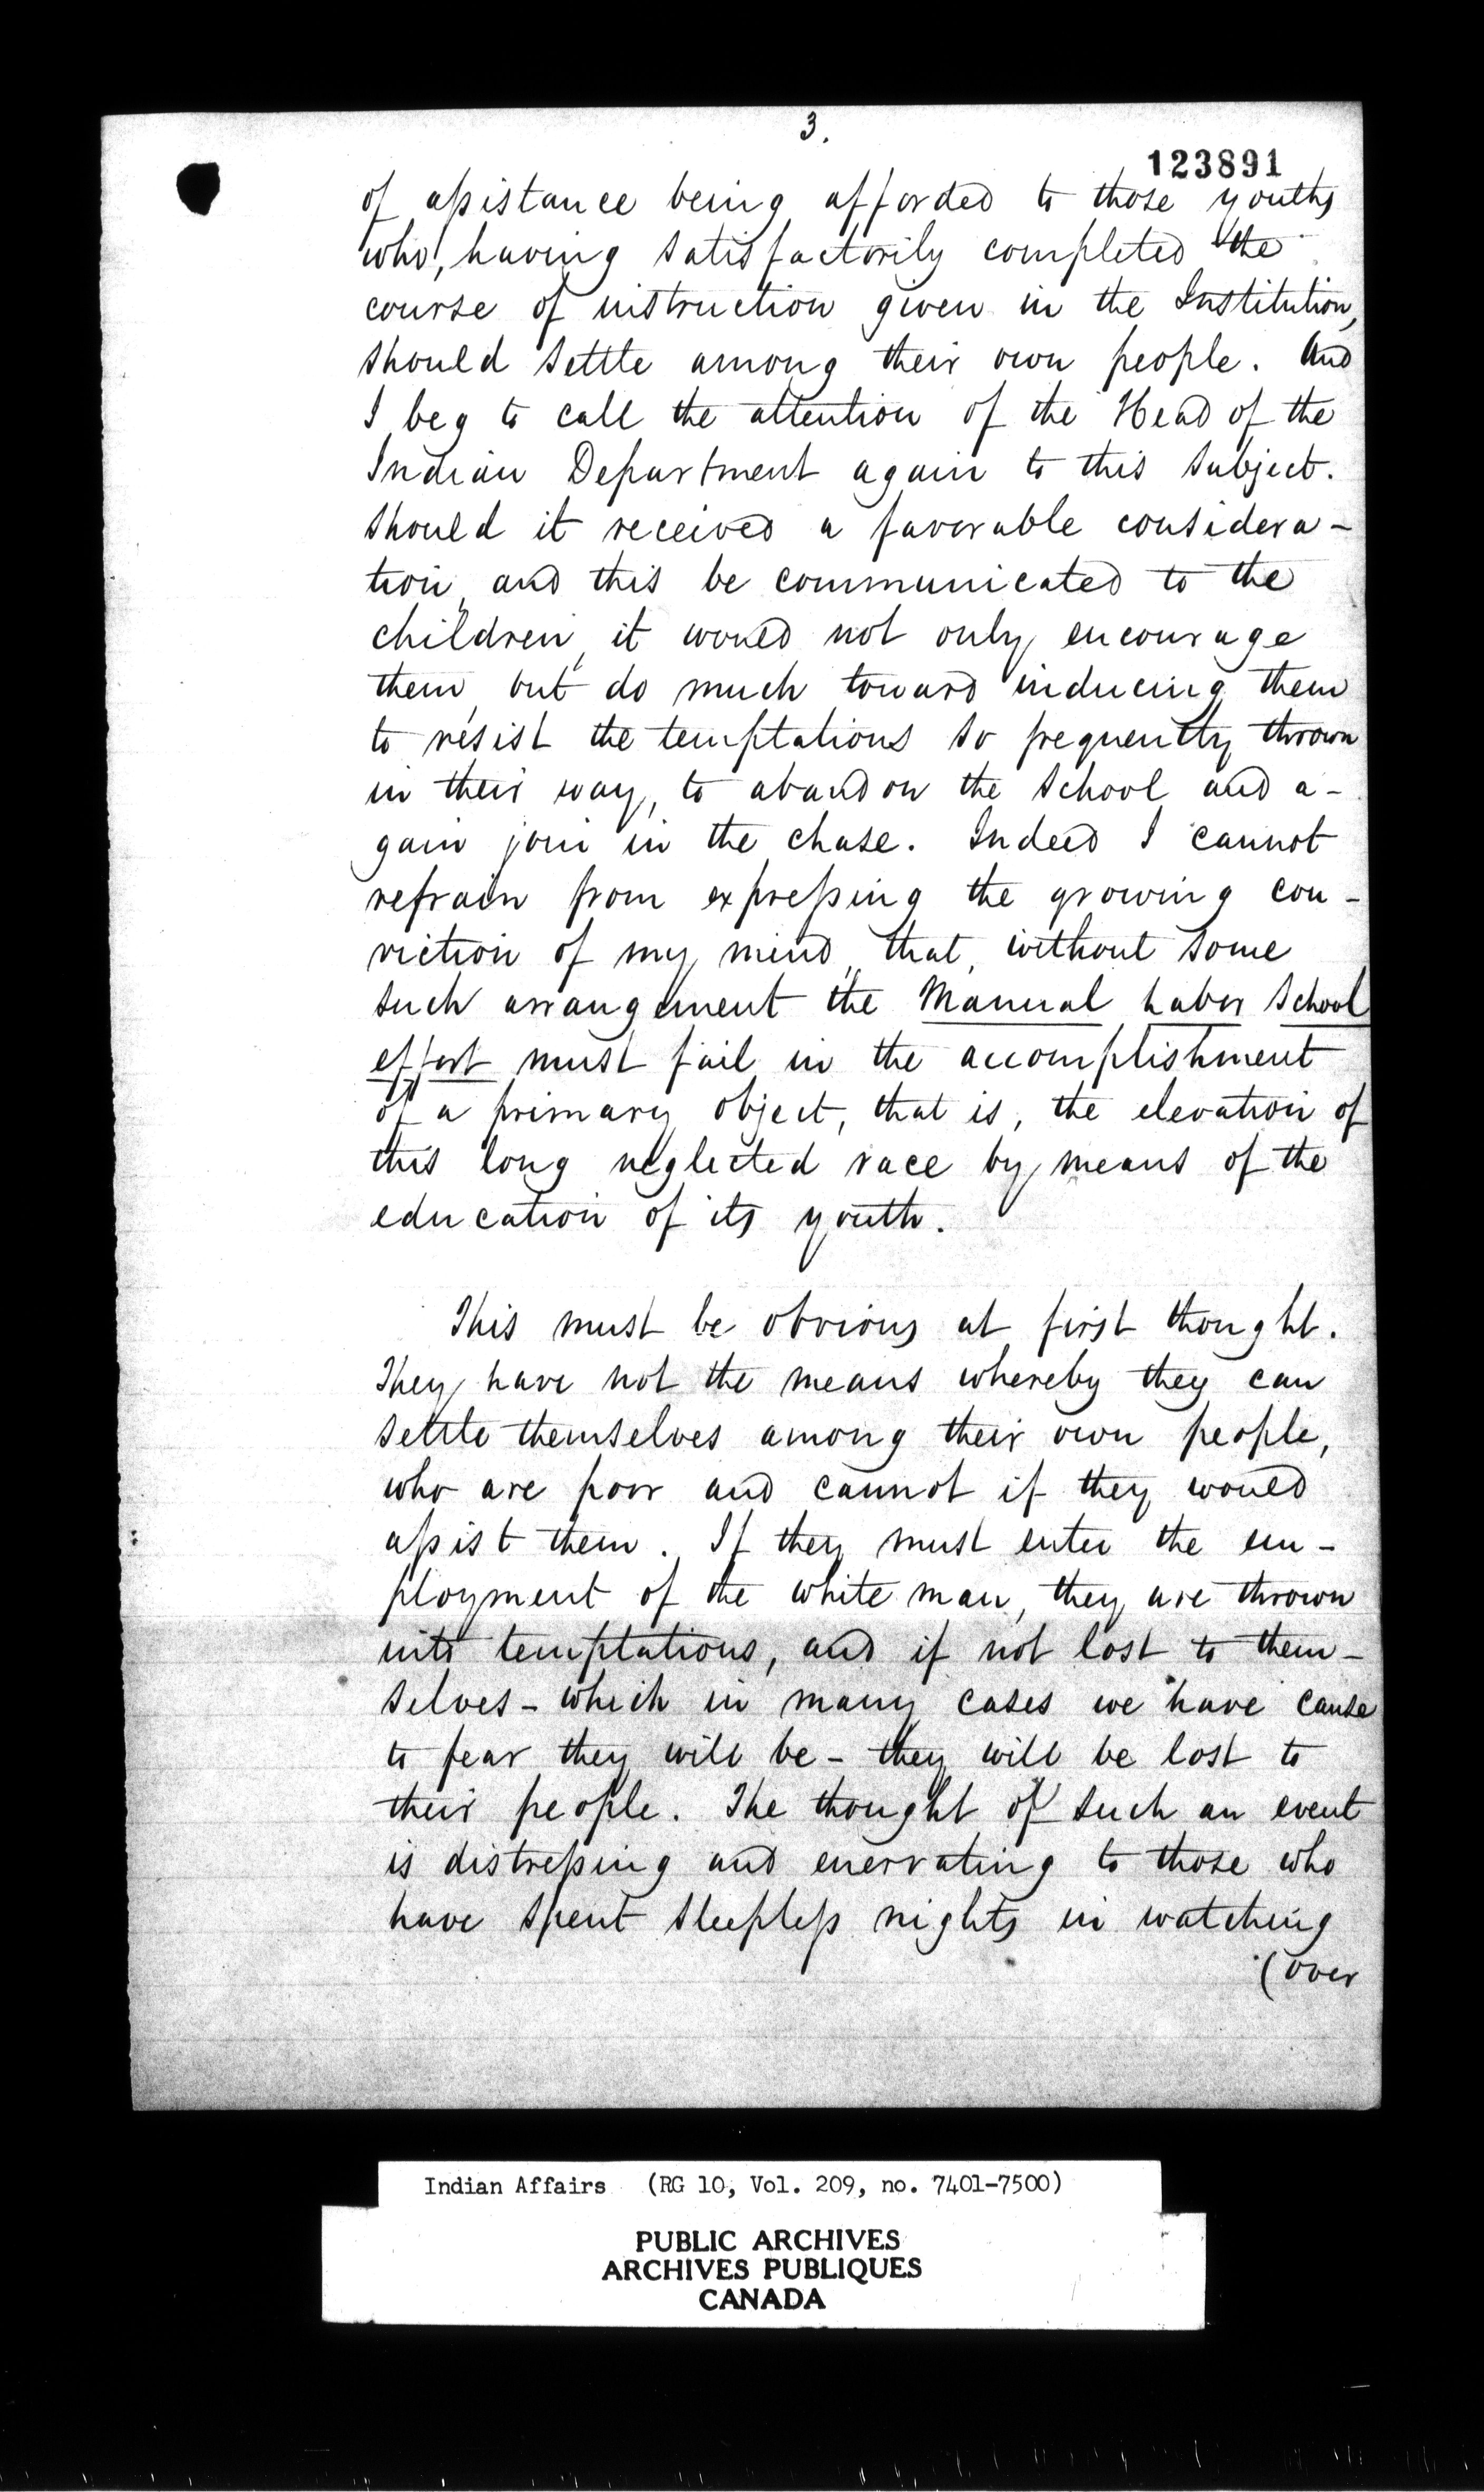 3.
123891
of assistance being afforded to those youths
who, having satisfactorily completed the
course of instruction given in the Institution,
should settle among their own people. And
I beg to call the attention of the Head of the
Indian Department again to this subject.
Should it received a favorable considera-
tion, and this be communicated to the
children, it would not only encourage
them, but do much toward inducing them
to resist the temptations so frequently thrown
in their way, to abandon the school and a-
gain join in the chase. Indeed I cannot
refrain from expressing the growing con-
viction of my mind, that, without some
such arrangement the Manual Labor School
effort must fail in the accomplishment
of a primary object, that is, the elevation of
this long neglected race by means of the
education of its youth.
This must be obvious at first thought.
They have not the means whereby they can
settle themselves among their own people,
who are poor and cannot if they would
assist them. If they must enter the em-
ployment of the white man, they are thrown
into temptations, and if not lost to them-
selves - which in many cases we have cause
to fear they will be - they will be lost to
their people. The thought of such an event
is distressing and enervating to those who
have spent sleepless nights in watching
(over
Indian Affairs (RG 10, Vol. 209, no. 7401-7500)
PUBLIC ARCHIVES
ARCHIVES PUBLIQUES
CANADA